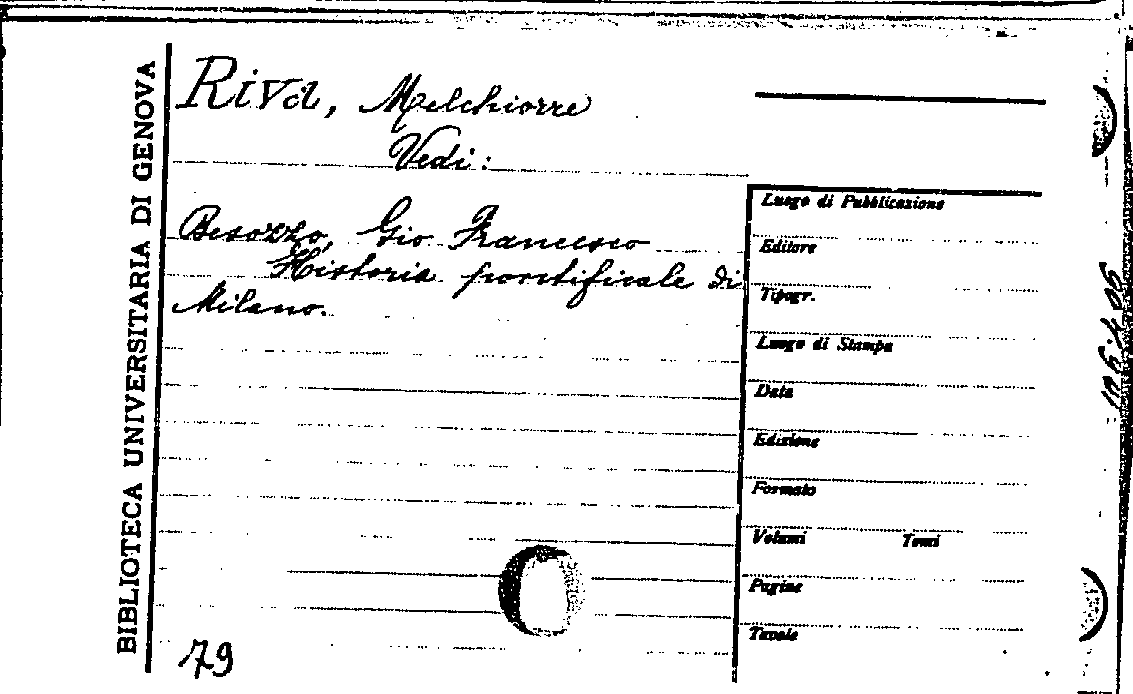 BIBLIOTECA UNIVERSITARIA DI GENOVA
Riva, Melchiorre
Vedi:
Besozzo, Gio Francesco
Historia pontificale di
Milano.
79
Luogo di Pubblicazione
Editore
Tipogr.
Luogo di Stampa
Data
Edizione
Formato
Volumi Tomi
Pagine
Tavole